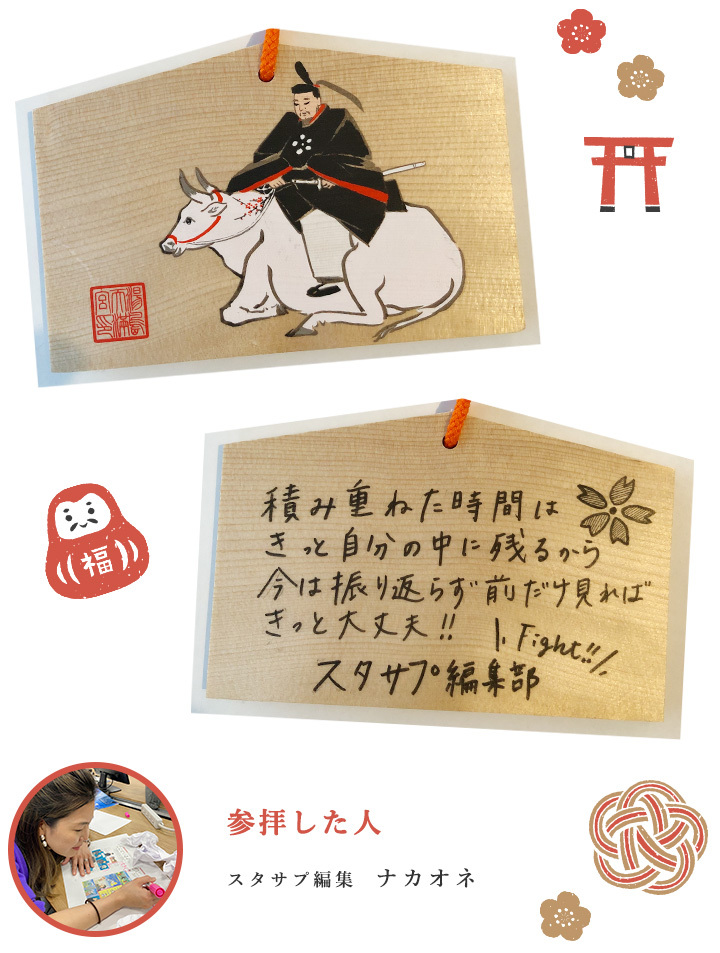 湯島
天満
宮印
積み重ねた時間は
きっと自分の中に残るから
今は振り返らず前だけ見れば
きっと大丈夫!!
\\. Fight!!/.
スタサプ編集部
福
参拝した人
スタサプ編集 ナカオネ